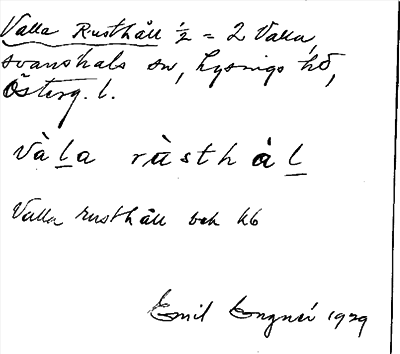 Valla Rusthåll ½ = 2 Valla,
svanshals sn, Lysings hd,
Österg. l.
và l a rùsth å l
Valla rusthåll och kb
Emil Engnér 1929